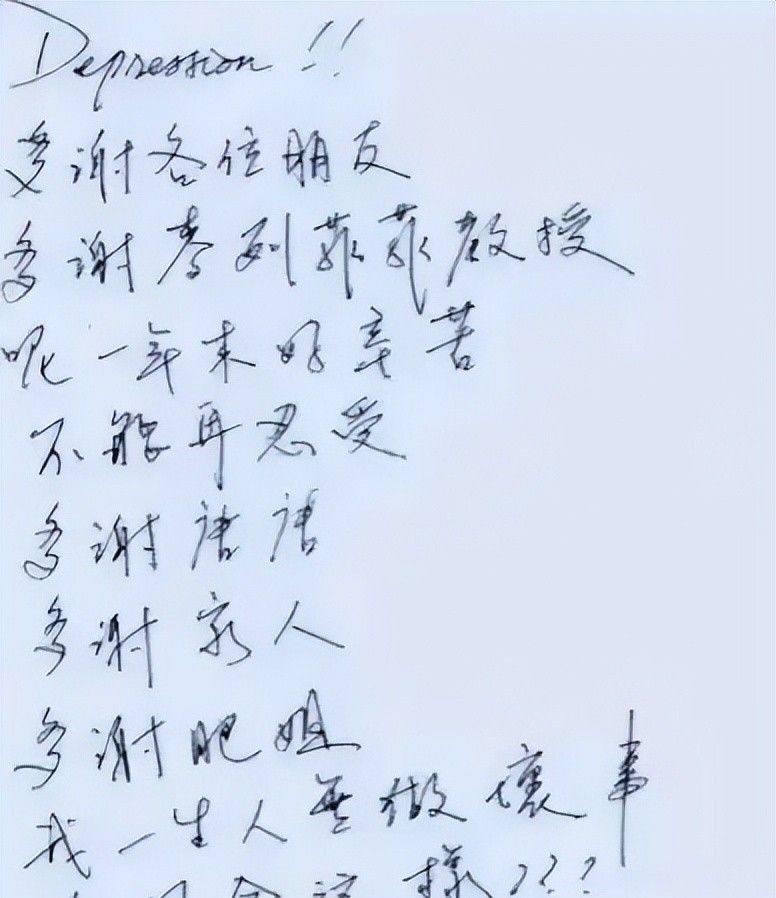 Depression!!
多谢各位朋友
多谢麥列菲菲教授
呢一年来好辛苦
不能再忍受
多谢唐唐
多谢家人
多谢肥姐
我一生人無做壞事
會這樣???